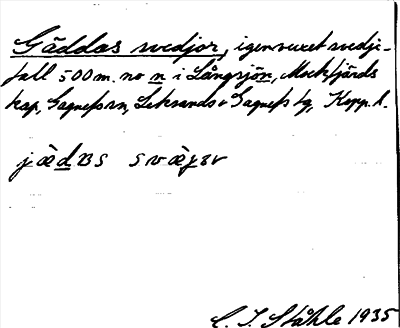 Gäddas svedjor, igenvuxet svedje-
fall 500 m. no n i Långsjön, Mockfjärds
kap, Gagnefs sn, Leksands o Gagnefs tg, Kopp. l.
jä̀dɒs svä̀jɛr
C. I. Ståhle 1935